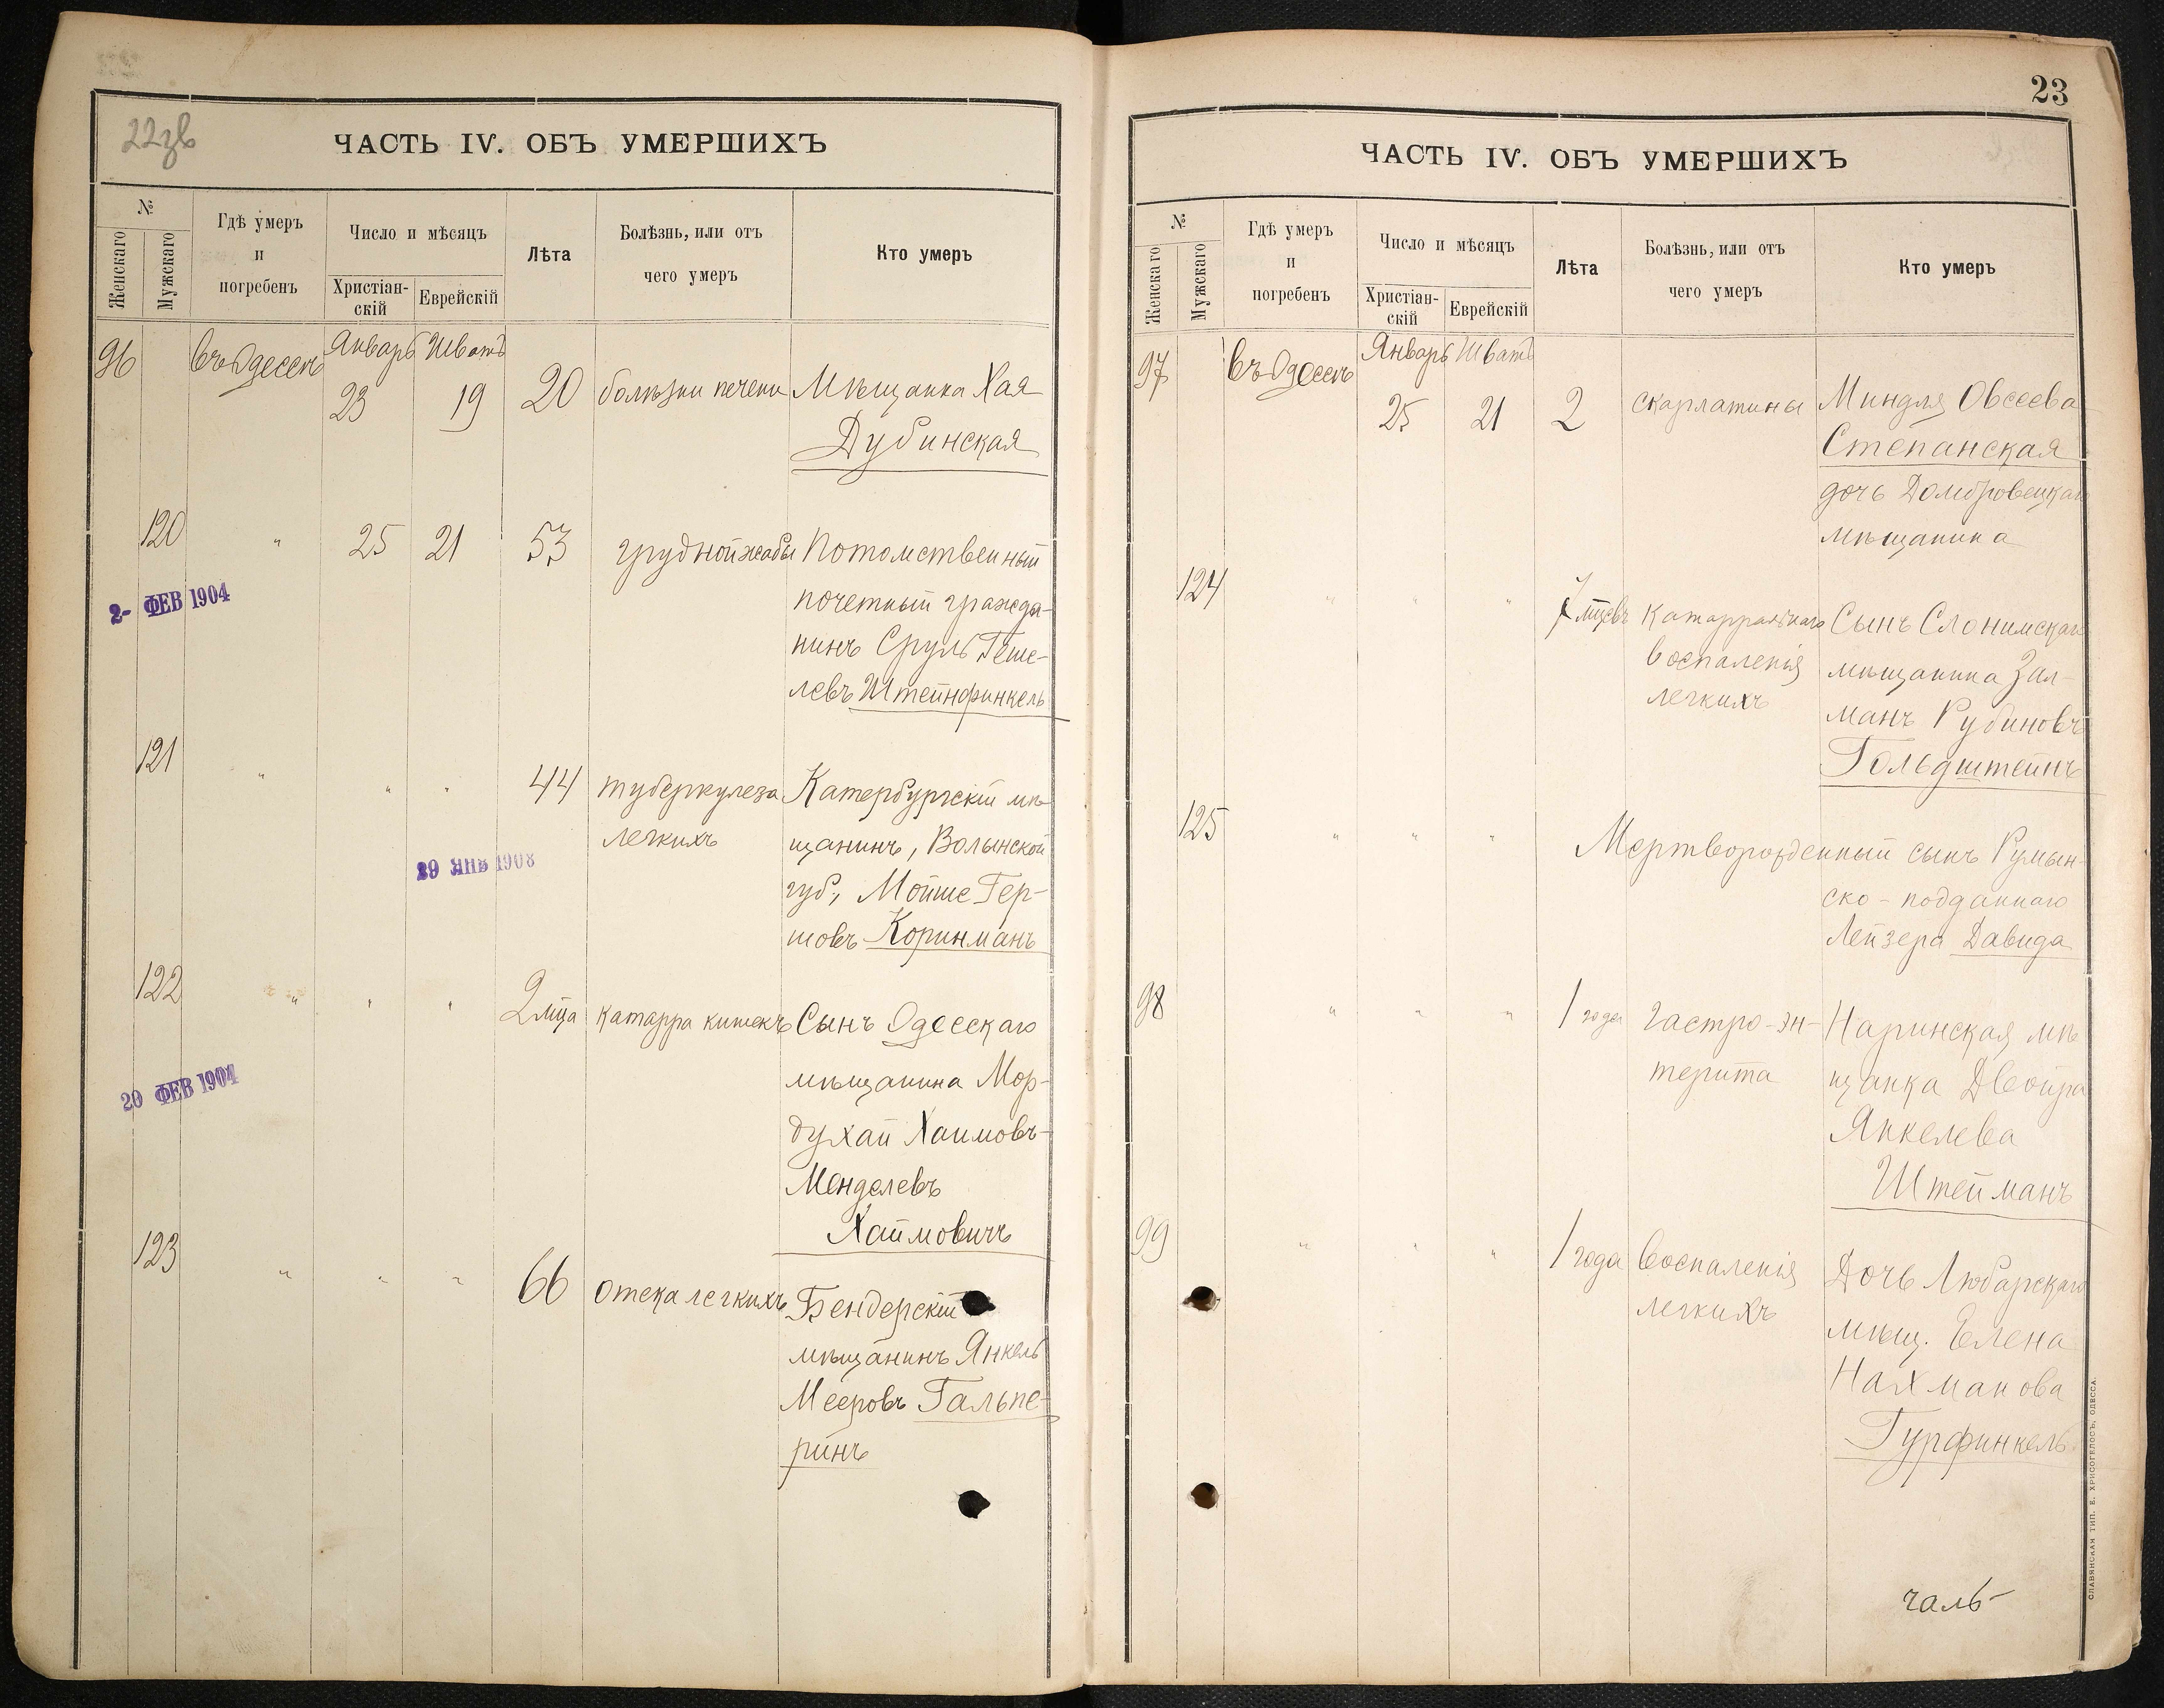 22зв
ЧАСТЬ IV. ОБЪ УМЕРШИХЪ
№
Женскаго
Мужскаго
Гдѣ умеръ
и
погребенъ
Число и мѣсяцъ
Христіан-
скій
Еврейскій
Лѣта
Болѣзнь, или отъ
чего умеръ
Кто умеръ
96 въ Одессѣ Январь Шватъ
23 19 20 болѣзни печени Мѣщанка Хая
Дубинская
120 " 25 21 53 грудной жабы Потомственный
почетный гражда-
нинъ Сруль Геше-
левъ Штейнфинкель
2- ФЕВ 1904
121 " " " 44 туберкулеза Катербургскій мѣ-
легкихъ щанинъ, Волынской
губ., Мойше Гер-
шовъ Коринманъ
29 ЯНВ 1908
122 " " " 2 мца катарра кишекъ Сынъ Одесскаго
мѣщанина Мор-
духай Хаимовъ-
Менделевъ
Хаймовичъ
20 ФЕВ 1904
123 " " " 66 отека легкихъ Бендерскій
мѣщанинъ Янкель
Мееровъ Гальпе-
ринъ
23
ЧАСТЬ IV. ОБЪ УМЕРШИХЪ
№
Женскаго
Мужскаго
Гдѣ умеръ
и
погребенъ
Число и мѣсяцъ
Христіан-
скій
Еврейскій
Лѣта
Болѣзнь, или отъ
чего умеръ
Кто умеръ
97 въ Одессѣ Январь Шватъ
25 21 2 скарлатины Миндля Овсеева
Степанская
дочь Домбровецкаго
мѣщанина
124 " " " 7 мцевъ катарральнаго Сынъ Слонимскаго
воспаленія мѣщанина Зал-
легкихъ манъ Рубиновъ
Гольдштейнъ
125 " " " Мертворожденный сынъ Румын-
ско-подданнаго
Лейзера Давида
98 " " " 1 года гастро-эн- Наринская мѣ-
терита щанка Двойра
Янкелева
Штейманъ
99 " " " 1 года воспаленія Дочь Любарскаго
легкихъ мѣщ. Елена
Нахманова
Гурфинкель
галь-
СЛАВЯНСКАЯ ТИП. Е. ХРИСОГЕЛОСЪ, ОДЕССА.